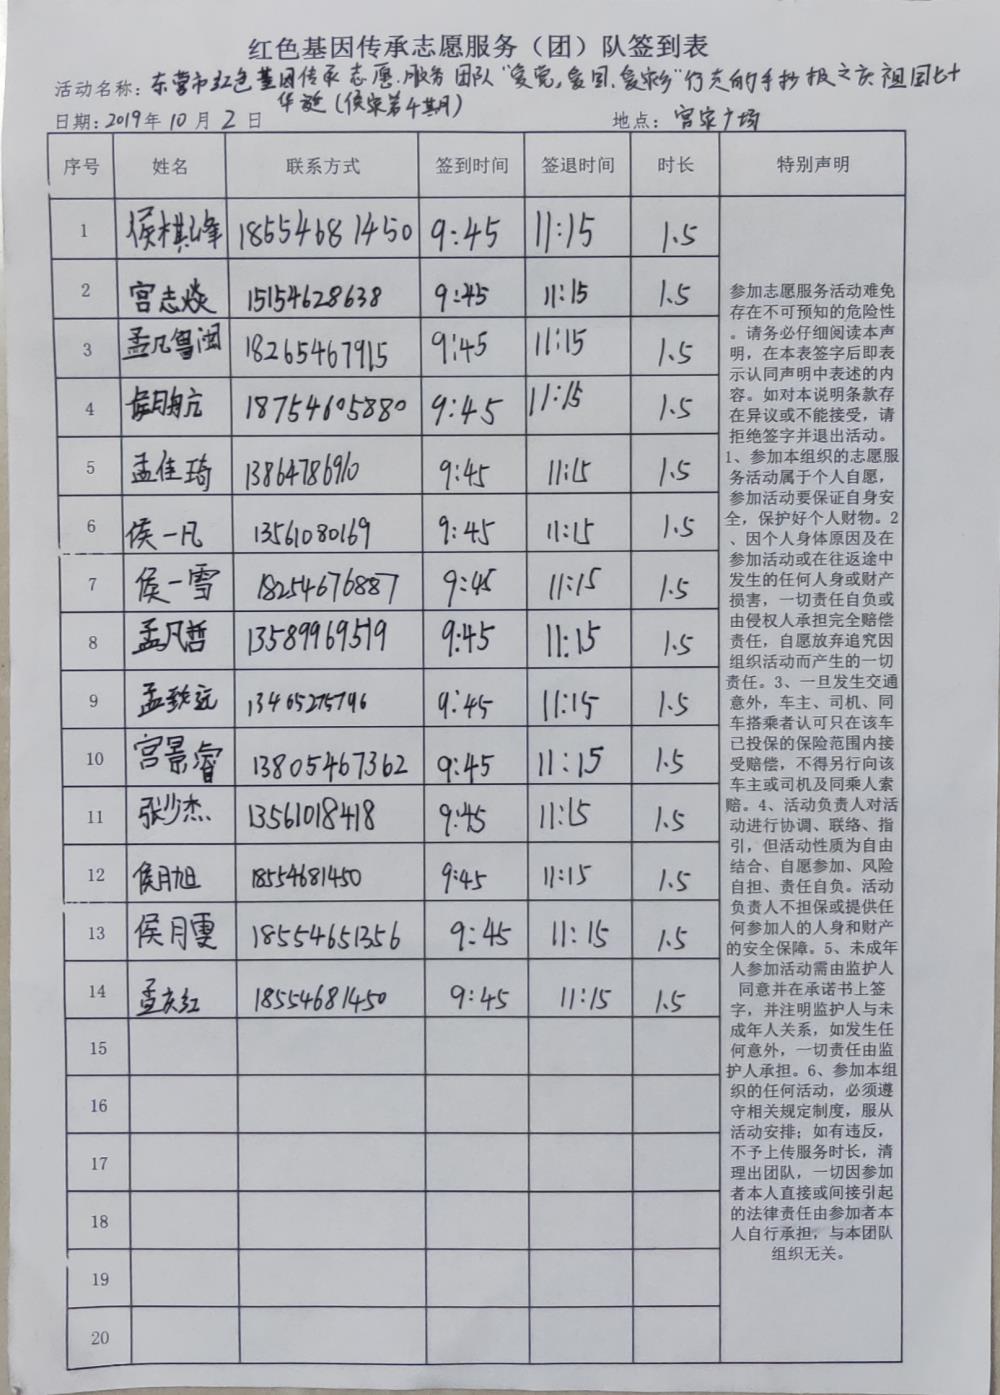 红色基因传承志愿服务（团）队签到表
活动名称：东营市红色基因传承志愿服务团队“爱党，爱国，爱家乡”行走的手抄报之庆祖国七十
华诞（侯家第4期）
日期：2019年10月2日 地点：宫家广场
序号 姓名 联系方式 签到时间 签退时间 时长 特别声明
1 侯棋峰 18554681450 9:45 11:15 1.5
2 宫志焱 15154628638 9:45 11:15 1.5
3 孟凡粤闽 18265467915 9:45 11:15 1.5
4 侯明航 18754605880 9:45 11:15 1.5
5 孟佳琦 13864786910 9:45 11:15 1.5
6 侯一凡 13561080169 9:45 11:15 1.5
7 侯一雪 18254676887 9:45 11:15 1.5
8 孟凡哲 13589969519 9:45 11:15 1.5
9 孟致远 13465275796 9:45 11:15 1.5
10 宫景睿 13805467362 9:45 11:15 1.5
11 张少杰 13561018418 9:45 11:15 1.5
12 侯月旭 18554681450 9:45 11:15 1.5
13 侯月雯 18554651356 9:45 11:15 1.5
14 孟庆红 18554681450 9:45 11:15 1.5
15
16
17
18
19
20
参加志愿服务活动难免
存在不可预知的危险性
。请务必仔细阅读本声
明，在本表签字后即表
示认同声明中表述的内
容。如对本说明条款存
在异议或不能接受，请
拒绝签字并退出活动。
1、参加本组织的志愿服
务活动属于个人自愿，
参加活动要保证自身安
全，保护好个人财物。2
、因个人身体原因及在
参加活动或在往返途中
发生的任何人身或财产
损害，一切责任自负或
由侵权人承担完全赔偿
责任，自愿放弃追究因
组织活动而产生的一切
责任。3、一旦发生交通
意外，车主、司机、同
车搭乘者认可只在该车
已投保的保险范围内接
受赔偿，不得另行向该
车主或司机及同乘人索
赔。4、活动负责人对活
动进行协调、联络、指
引，但活动性质为自由
结合、自愿参加、风险
自担、责任自负。活动
负责人不担保或提供任
何参加人的人身和财产
的安全保障。5、未成年
人参加活动需由监护人
同意并在承诺书上签
字，并注明监护人与未
成年人关系，如发生任
何意外，一切责任由监
护人承担。6、参加本组
织的任何活动，必须遵
守相关规定制度，服从
活动安排；如有违反，
不予上传服务时长，清
理出团队，一切因参加
者本人直接或间接引起
的法律责任由参加者本
人自行承担，与本团队
组织无关。